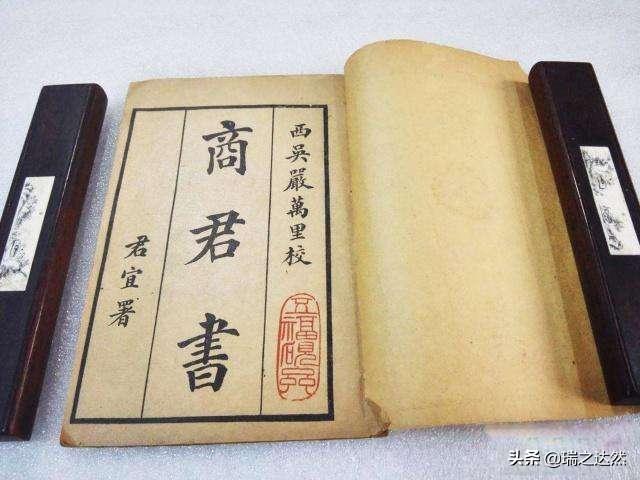 西吳嚴萬里校
商君書
君宜署
头条 @瑞之达然